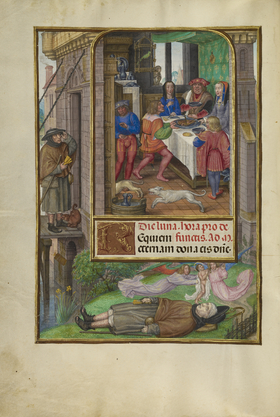 Die lune. hora pro de
Equiem functis. Ad m̄.
eternam dona eis dn̄e